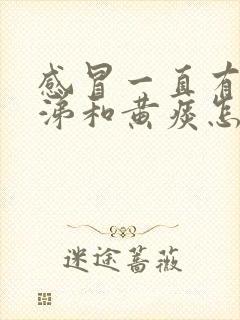 感冒一直有
涕和黄痰怎
迷途蔷薇